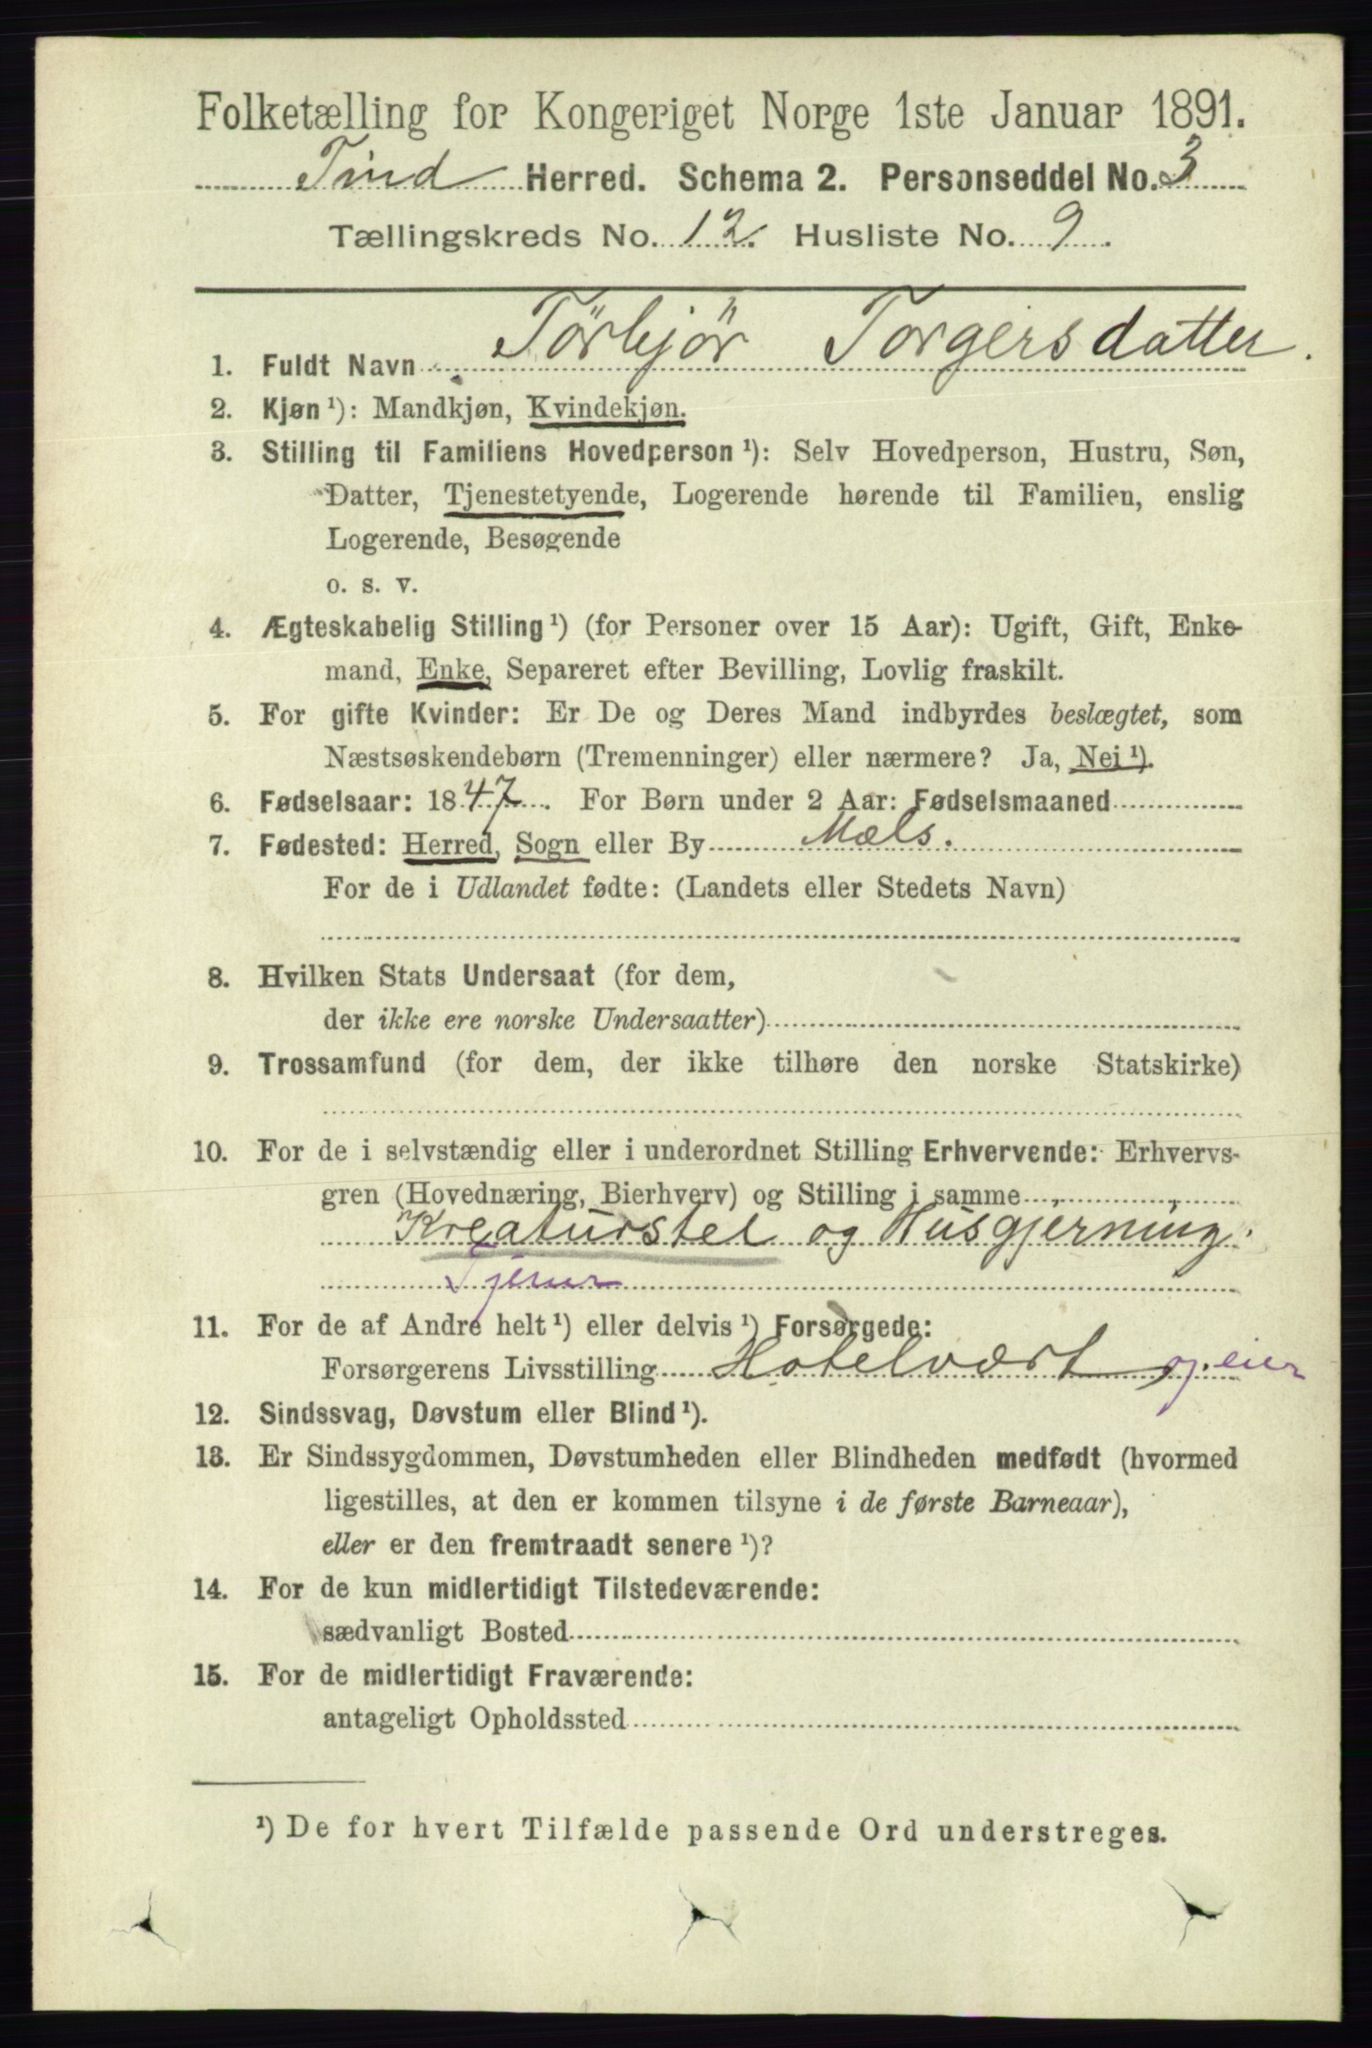 Folketælling for Kongeriget Norge 1ste Januar 1891.
Tind Herred. Schema 2. Personseddel No. 3
Tællingskreds No. 12. Husliste No. 9.
1. Fuldt Navn Törbjör Torgersdatter.
2. Kjøn ¹): Mandkjøn, Kvindekjøn.
3. Stilling til Familiens Hovedperson ¹): Selv Hovedperson, Hustru, Søn,
Datter, Tjenestetyende, Logerende hørende til Familien, enslig
Logerende, Besøgende
o. s. v.
4. Ægteskabelig Stilling ¹) (for Personer over 15 Aar): Ugift, Gift, Enke-
mand, Enke, Separeret efter Bevilling, Lovlig fraskilt.
5. For gifte Kvinder: Er De og Deres Mand indbyrdes beslægtet, som
Næstsøskendebørn (Tremenninger) eller nærmere? Ja, Nei ¹).
6. Fødselsaar: 1847. For Børn under 2 Aar: Fødselsmaaned
7. Fødested: Herred, Sogn eller By Mæls.
For de i Udlandet fødte: (Landets eller Stedets Navn)
8. Hvilken Stats Undersaat (for dem,
der ikke ere norske Undersaatter)
9. Trossamfund (for dem, der ikke tilhøre den norske Statskirke)
10. For de i selvstændig eller i underordnet Stilling Erhvervende: Erhvervs-
gren (Hovednæring, Bierhverv) og Stilling i samme
Kreaturstel og Husgjerning.
Tjener
11. For de af Andre helt ¹) eller delvis ¹) Forsørgede:
Forsørgerens Livsstilling Hotelvært og eier
12. Sindssvag, Døvstum eller Blind ¹).
13. Er Sindssygdommen, Døvstumheden eller Blindheden medfødt (hvormed
ligestilles, at den er kommen tilsyne i de første Barneaar),
eller er den fremtraadt senere ¹)?
14. For de kun midlertidigt Tilstedeværende:
sædvanligt Bosted
15. For de midlertidigt Fraværende:
antageligt Opholdssted
¹) De for hvert Tilfælde passende Ord understreges.